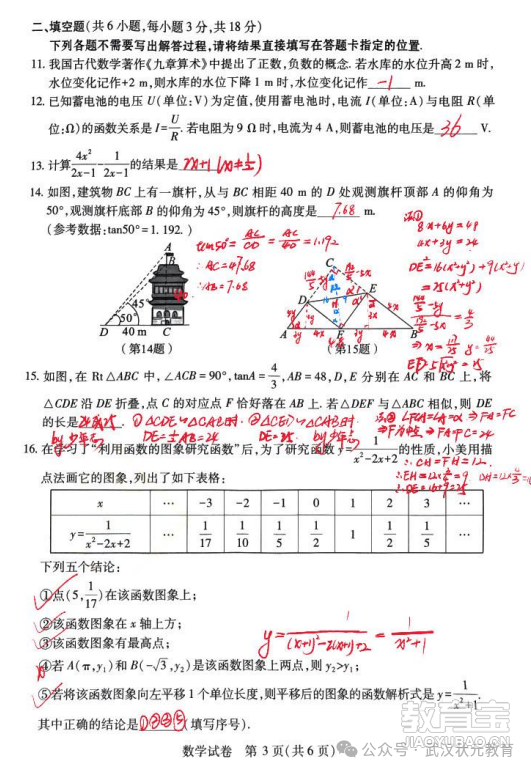 二、填空题(共6小题,每小题3分,共18分)
下列各题不需要写出解答过程,请将结果直接填写在答题卡指定的位置.
11. 我国古代数学著作《九章算术》中提出了正数,负数的概念.若水库的水位升高2 m时,
水位变化记作+2 m,则水库的水位下降1 m时,水位变化记作 -1 m.
12. 已知蓄电池的电压U(单位:V)为定值,使用蓄电池时,电流I(单位:A)与电阻R(单
位:Ω)的函数关系是I=U/R.若电阻为9 Ω时,电流为4 A,则蓄电池的电压是 36 V.
13. 计算4x²/(2x-1)-1/(2x-1)的结果是
14. 如图,建筑物BC上有一旗杆,从与BC相距40 m的D处观测旗杆顶部A的仰角为
50°,观测旗杆底部B的仰角为45°,则旗杆的高度是 7.68 m.
(参考数据:tan50°=1.192.)
tan50°=AC/CD=AC/40=1.192
∴AC=47.68
∴AB=7.68
8x+6y=48
4x+3y=24
DE²=16(x²+y²)+9(x²+y²)
=25(x²+y²)
A
B
45°
50°
D 40 m C
(第14题)
C
D
E
A
F
B
(第15题)
15. 如图,在Rt△ABC中,∠ACB=90°,tanA=4/3,AB=48,D,E分别在AC和BC上,将
△CDE沿DE折叠,点C的对应点F恰好落在AB上.若△DEF与△ABC相似,则DE
的长是 24或25.
①△CDE∽△CAB时
DE=1/2AB=24
②△CED∽△CAB时
DE=25
⇒FA=FC
⇒FA=FC=24
16. 在学习了“利用函数的图象研究函数”后,为了研究函数y=1/(x²-2x+2)的性质,小美用描
点法画它的图象,列出了如下表格:
∴CH=FH=12
x … -3 -2 -1 0 1 2 3 …
y=1/(x²-2x+2) … 1/17 1/10 1/5 1/2 1 1/2 1/5 …
下列五个结论:
①点(5,1/17)在该函数图象上;
②该函数图象在x轴上方;
③该函数图象有最高点;
④若A(π,y₁)和B(-√3,y₂)是该函数图象上两点,则y₂>y₁;
⑤若将该函数图象向左平移1个单位长度,则平移后的图象的函数解析式是y=1/(x²+1).
y=1/((x+1)²-2(x+1)+2)=1/(x²+1)
其中正确的结论是 ①②③⑤ (填写序号).
数学试卷 第3页(共6页)
公众号·武汉状元教育
教育宝